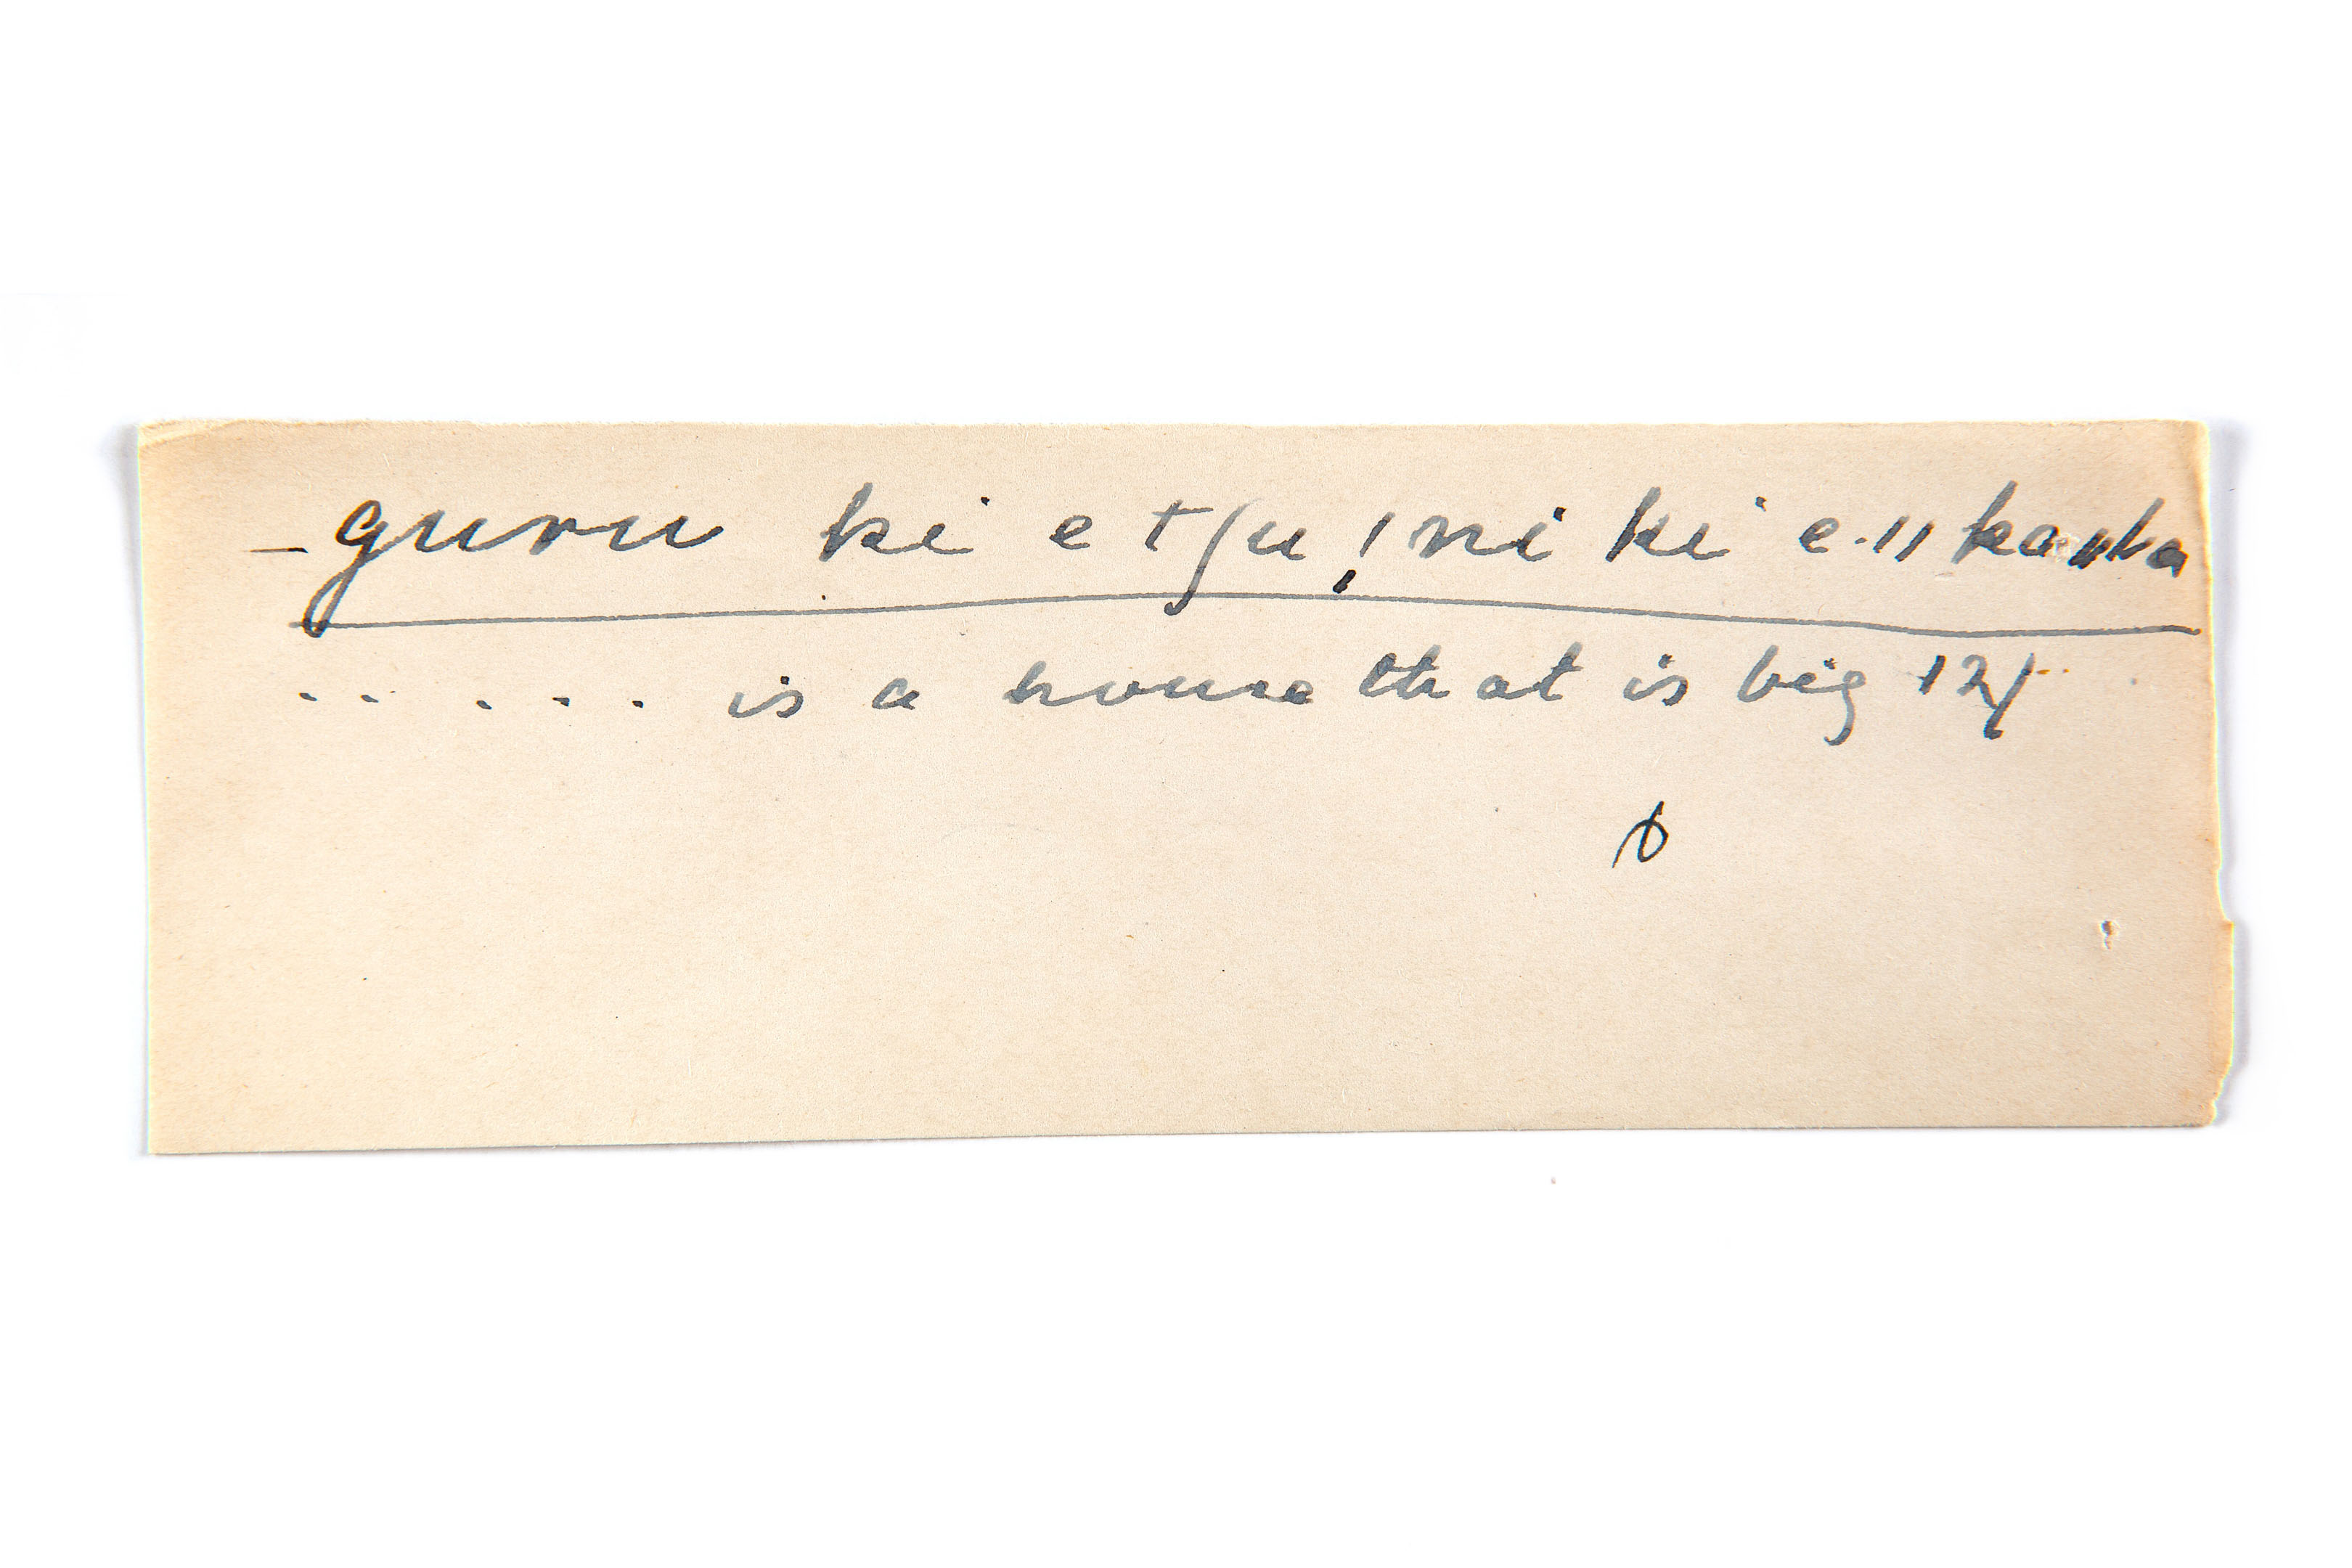 – guru ki e tʃu ! ni ki e·ǁ ka ǁka
. . . . . . is a house that is big 124